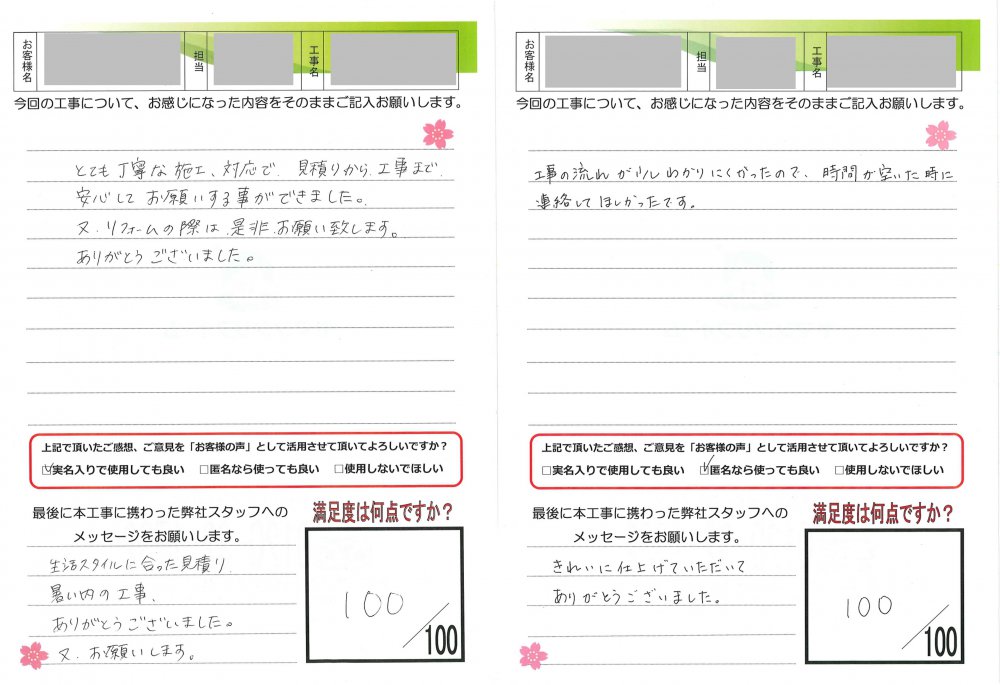 お客様名
担当
工事名
今回の工事について、お感じになった内容をそのままご記入お願いします。
とても丁寧な施工、対応で、見積りから、工事まで、
安心してお願いする事ができました。
又、リフォームの際は、是非、お願い致します。
ありがとうございました。
上記で頂いたご感想、ご意見を「お客様の声」として活用させて頂いてよろしいですか?
☑実名入りで使用しても良い □匿名なら使っても良い □使用しないでほしい
最後に本工事に携わった弊社スタッフへの
メッセージをお願いします。
生活スタイルに合った見積り、
暑い内の工事、
ありがとうございました。
又、お願いします。
満足度は何点ですか?
100/100
お客様名
担当
工事名
今回の工事について、お感じになった内容をそのままご記入お願いします。
工事の流れが少しわかりにくかったので、時間が空いた時に
連絡してほしかったです。
上記で頂いたご感想、ご意見を「お客様の声」として活用させて頂いてよろしいですか?
□実名入りで使用しても良い ☑匿名なら使っても良い □使用しないでほしい
最後に本工事に携わった弊社スタッフへの
メッセージをお願いします。
きれいに仕上げていただいて
ありがとうございました。
満足度は何点ですか?
100/100